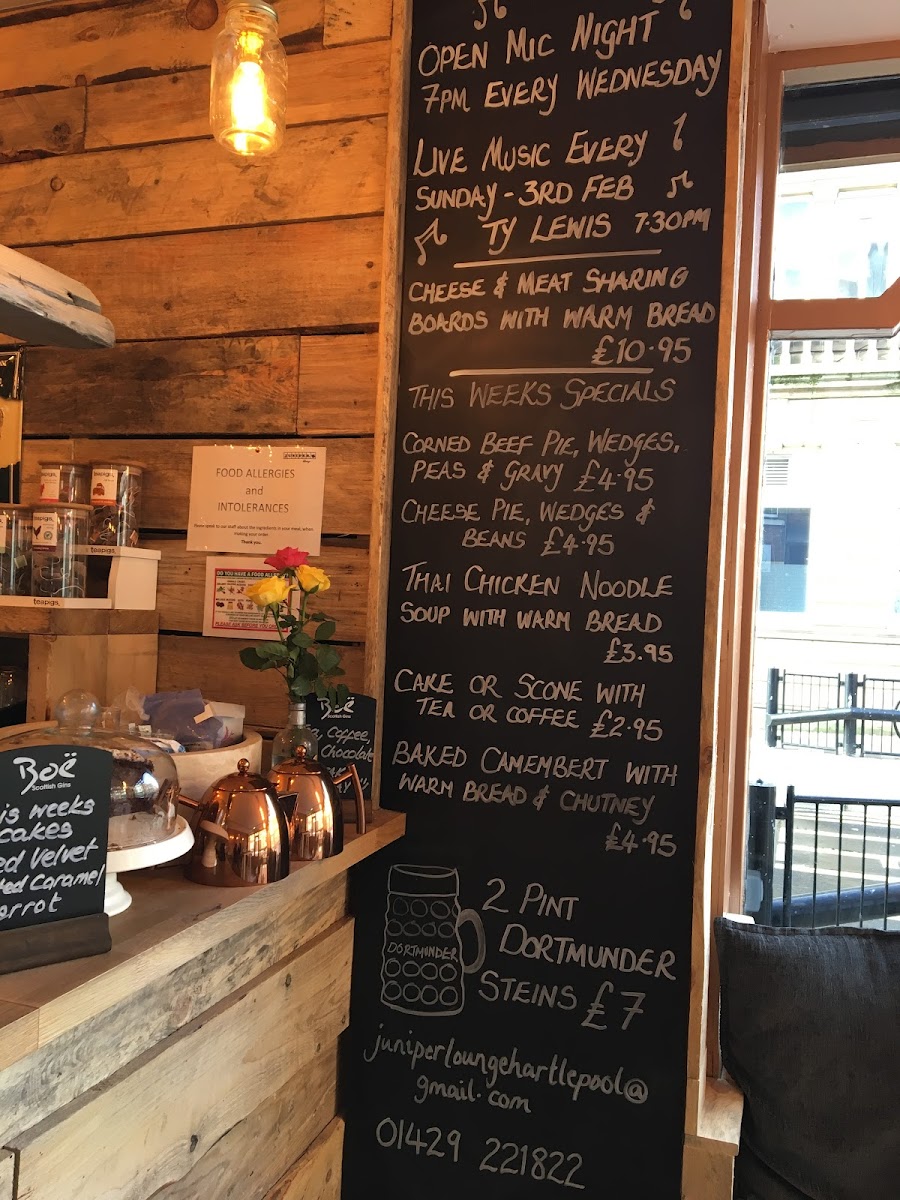 OPEN MIC NIGHT
7PM EVERY WEDNESDAY
LIVE MUSIC EVERY
SUNDAY - 3RD FEB
TY LEWIS 7:30PM
CHEESE & MEAT SHARING
BOARDS WITH WARM BREAD
£10.95
THIS WEEKS SPECIALS
CORNED BEEF PIE, WEDGES,
PEAS & GRAVY £4.95
CHEESE PIE, WEDGES &
BEANS £4.95
THAI CHICKEN NOODLE
SOUP WITH WARM BREAD
£3.95
CAKE OR SCONE WITH
TEA OR COFFEE £2.95
BAKED CAMEMBERT WITH
WARM BREAD & CHUTNEY
£4.95
DORTMUNDER
2 PINT
DORTMUNDER
STEINS £7
juniperloungehartlepool@
gmail.com
01429 221822
FOOD ALLERGIES
and
INTOLERANCES
Please speak to our staff about the ingredients in your meal, when
making your order.
Thank you.
DO YOU HAVE A FOOD
teapigs.
teapigs.
Boë
Scottish Gins
Coffee,
Chocolate
Boë
Scottish Gins
is weeks
cakes
ed Velvet
ted Caramel
arrot